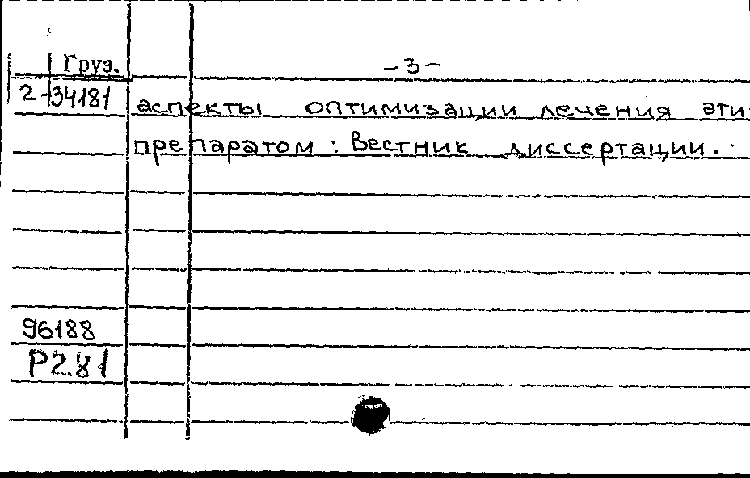 Груз.
-3-
2-34181
аспекты оптимизации лечения эти
препаратом: Вестник диссертации.
96188
Р2.81